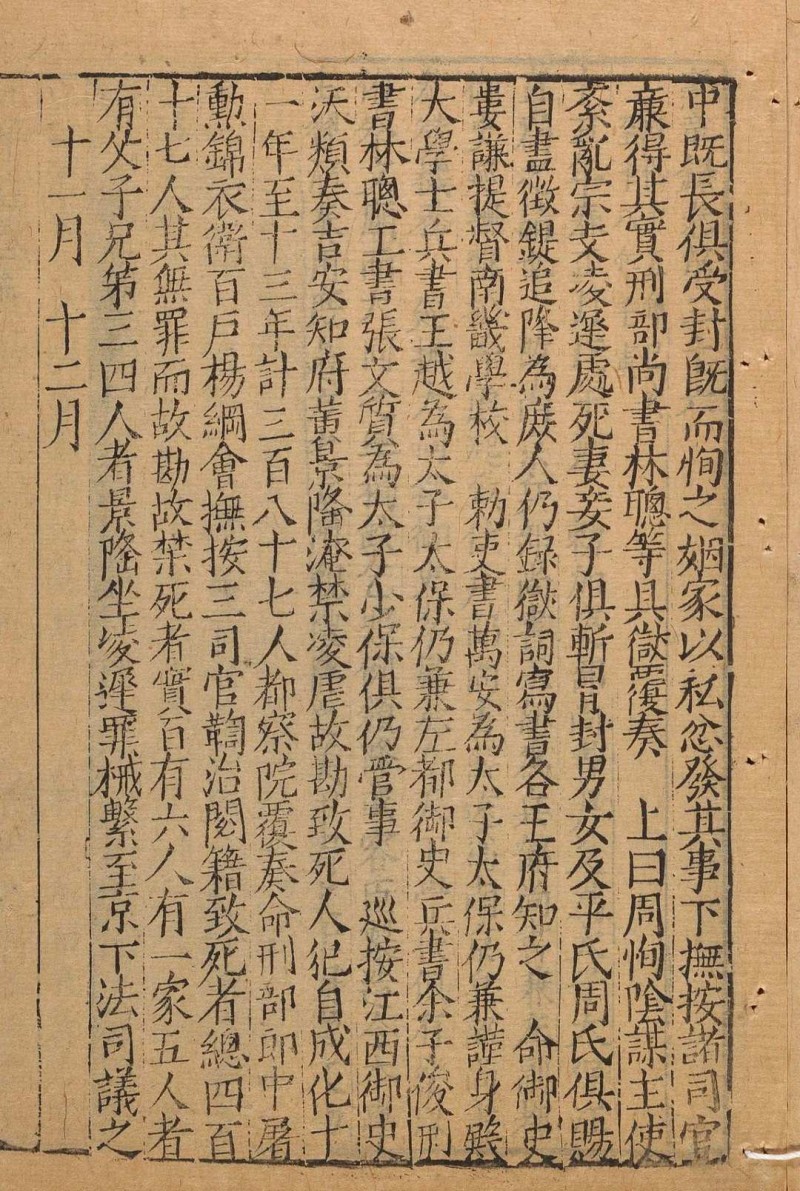 中既長俱受封既而恂之姻家以私忿發其事下撫按諸司官
廉得其實刑部尚書林聰等具獄覆奏　上曰周恂陰謀主使
紊亂宗支凌遲處死妻妾子俱斬冒封男女及平氏周氏俱賜
自盡徵鍉追降為庶人仍録獄詞寫書各王府知之　命御史
婁謙提督南畿學校　勑吏書萬安為太子太保仍兼謹身殿
大學士兵書王越為太子太保仍兼左都御史兵書余子俊刑
書林聰工書張文質為太子少保俱仍管事　巡按江西御史
沃頖奏吉安知府黃景隆淹禁凌虐故勘致死人犯自成化十
一年至十三年計三百八十七人都察院覆奏命刑部郎中屠
勳錦衣衛百戶楊綱會撫按三司官鞫治閱籍致死者總四百
十七人其無罪而故勘故禁死者實百有六人有一家五人者
有父子兄第三四人者景隆坐凌遲罪械繫至京下法司議之
十一月　十二月